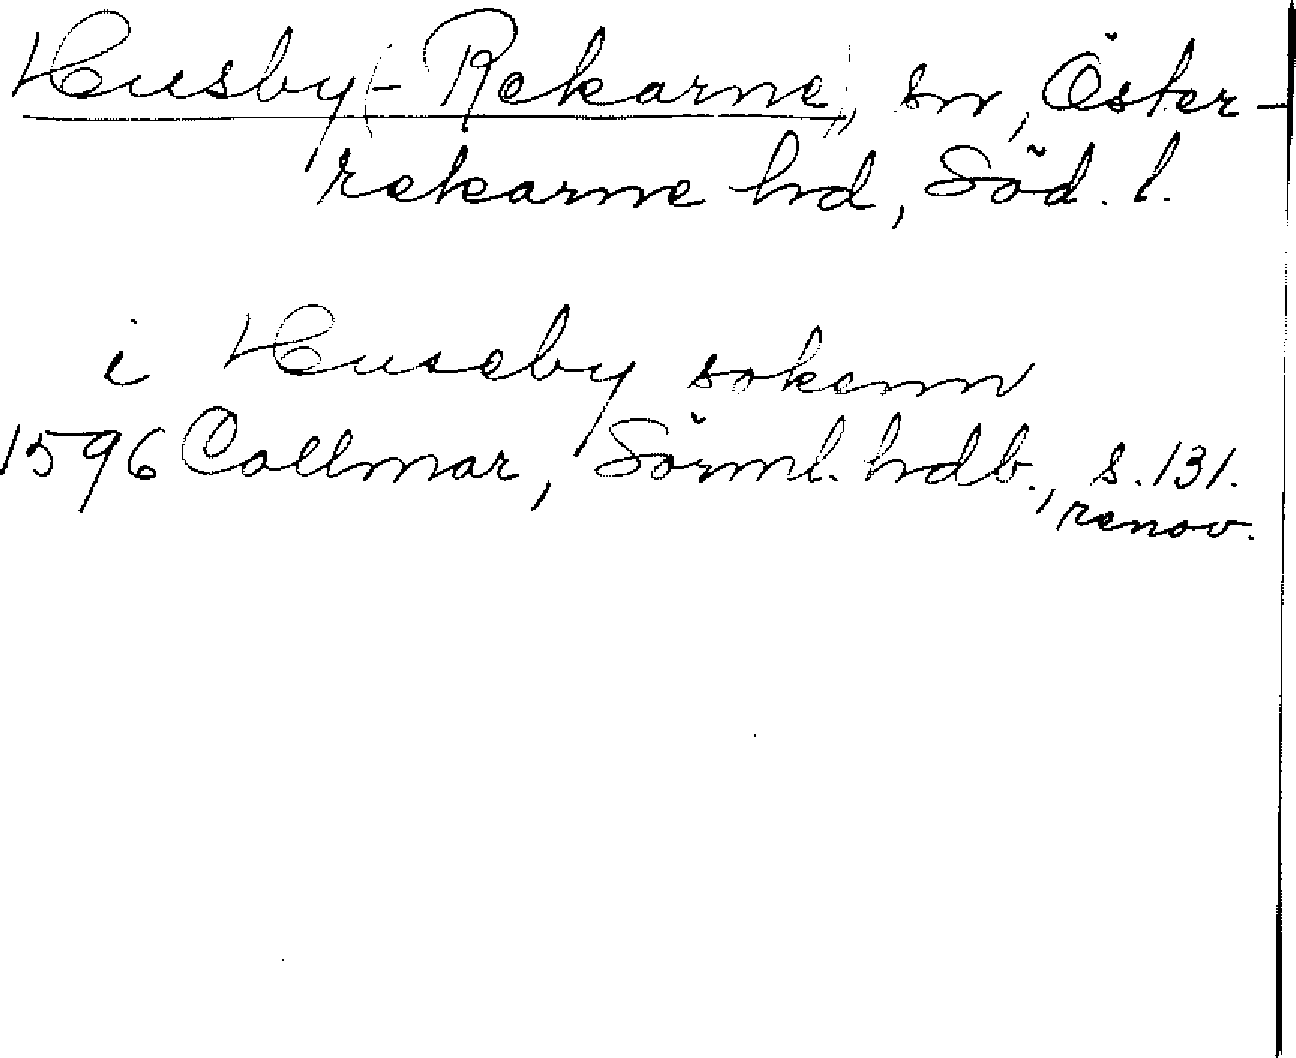 Husby(-Rekarne), sn, Öster-
rekarne hd, Söd. l.
i Huseby sokenn
1596 Collmar, Sörml. hdb., s. 131.
renov.